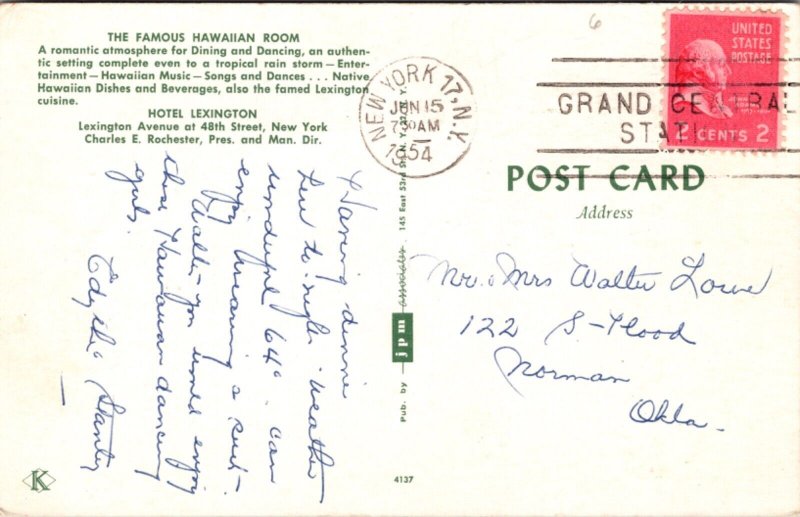 THE FAMOUS HAWAIIAN ROOM
A romantic atmosphere for Dining and Dancing, an authen-
tic setting complete even to a tropical rain storm—Enter-
tainment—Hawaiian Music—Songs and Dances . . . Native
Hawaiian Dishes and Beverages, also the famed Lexington
cuisine.
HOTEL LEXINGTON
Lexington Avenue at 48th Street, New York
Charles E. Rochester, Pres. and Man. Dir.
Having dinner
here to-night. Weather
wonderful 64°. can
enjoy wearing a suit-
Walter you would enjoy
these Hawaiian dancing
girls.
Edythe Stanley
K
Pub. by jpm associates 145 East 53rd St., N.Y. 22, N.Y.
4137
6
NEW YORK 17, N.Y.
JUN 15
7 30 AM
1954
GRAND CENTRAL
STATION
UNITED
STATES
POSTAGE
2 CENTS 2
POST CARD
Address
Mr. & Mrs Walter Lowe
122 S-Flood
Norman
Okla.